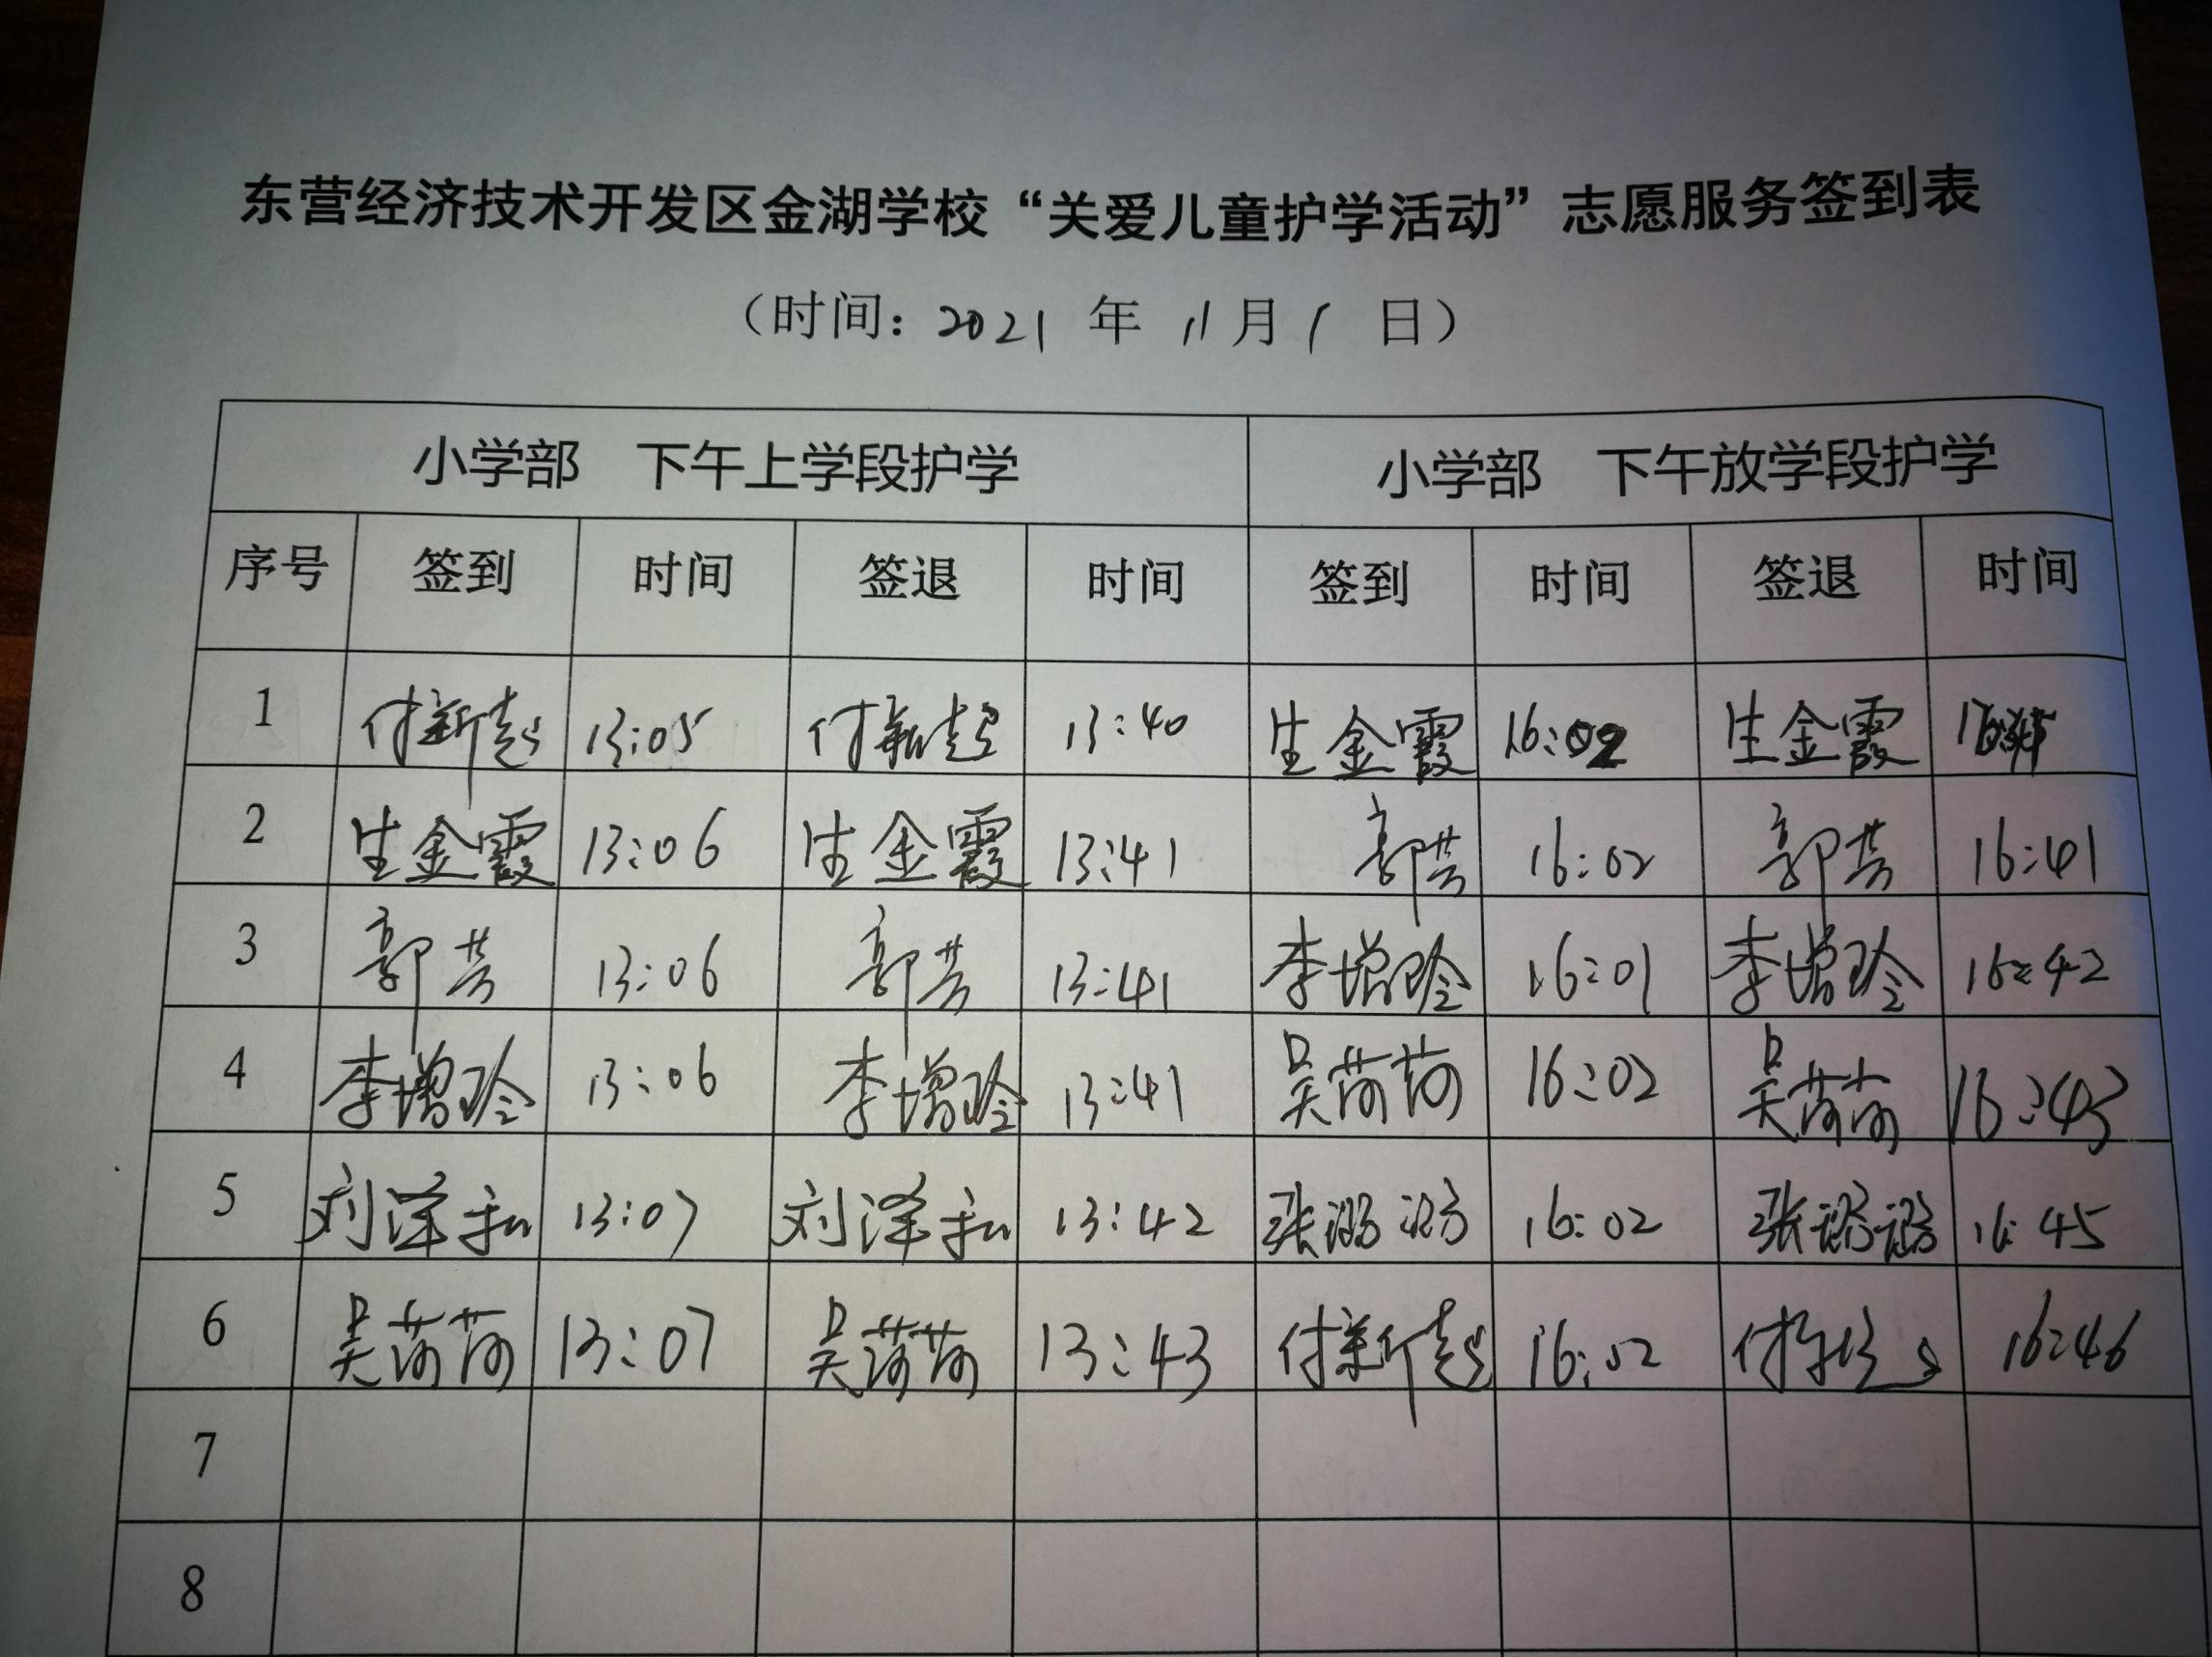 东营经济技术开发区金湖学校“关爱儿童护学活动”志愿服务签到表
（时间：2021 年 11月1 日）
小学部 下午上学段护学 小学部 下午放学段护学
序号 签到 时间 签退 时间 签到 时间 签退 时间
1 付新起 13:05 付新起 13:40 生金霞 16:02 生金霞
2 生金霞 13:06 生金霞 13:41 郭芸 16:02 郭芸 16:41
3 郭芸 13:06 郭芸 13:41 李增玲 16:01 李增玲 16:42
4 李增玲 13:06 李增玲 13:41 吴荷荷 16:02 吴荷荷 16:43
5 刘泽和 13:07 刘泽和 13:42 张 16:02 张 16:45
6 吴荷荷 13:07 吴荷荷 13:43 付新起 16:02 付 16:46
7
8